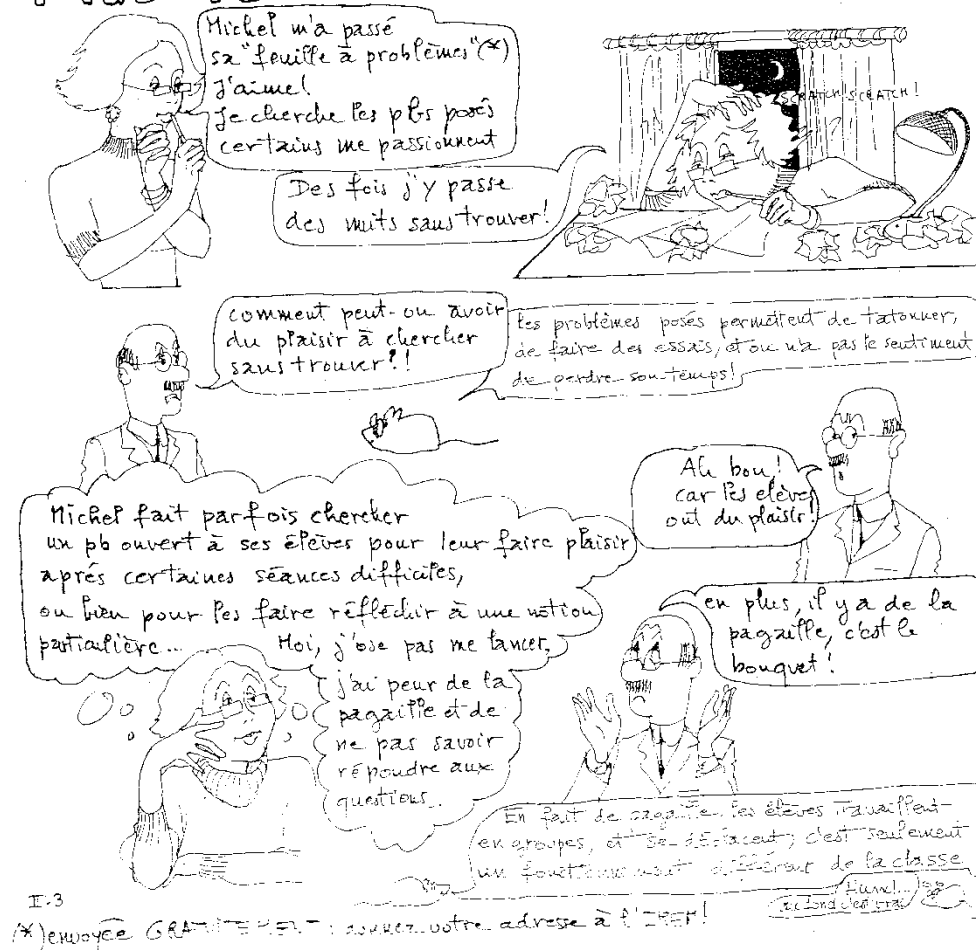 Michel m'a passé
sa "feuille à problèmes" (*)
J'aime!
Je cherche les pbs posés
certains me passionnent
SCRATCH! SCRATCH!
Des fois j'y passe
des nuits sans trouver!
comment peut-on avoir
du plaisir à chercher
sans trouver?!
Les problèmes posés permettent de tatonner,
de faire des essais, et on n'a pas le sentiment
de perdre son temps!
Ah bon!
car les elèves
ont du plaisir!
Michel fait parfois chercher
un pb ouvert à ses élèves pour leur faire plaisir
aprés certaines séances difficiles,
ou bien pour les faire réfléchir à une notion
particulière... Moi, j'ose pas me lancer,
j'ai peur de la
pagaille et de
ne pas savoir
répondre aux
questions...
en plus, il y a de la
pagaille, c'est le
bouquet!
En fait de pagaille, les élèves travaillent
en groupes, et se déplacent; c'est seulement
un fonctionnement différent de la classe
Hum!...
au fond c'est vrai
II-3
(*) envoyée GRATUITEMENT : donnez votre adresse à l'IREM!